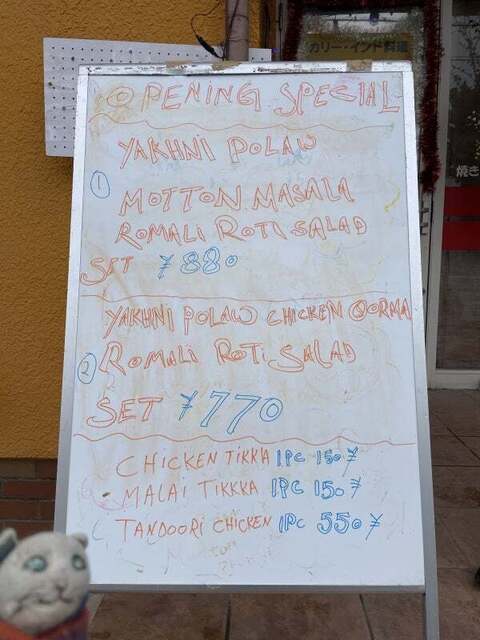 カリー・インド料理
OPENING SPECIAL
YAKHNI POLAW
①
MOTTON MASALA
ROMALI ROTI SALAD
SET ¥880
YAKHNI POLAW CHICKEN QORMA
② ROMALI ROTI SALAD
SET ¥770
CHICKEN TIKKA 1PC 150 ¥
MALAI TIKKKA 1PC 150 ¥
TANDOORI CHICKEN 1PC 550 ¥
焼き